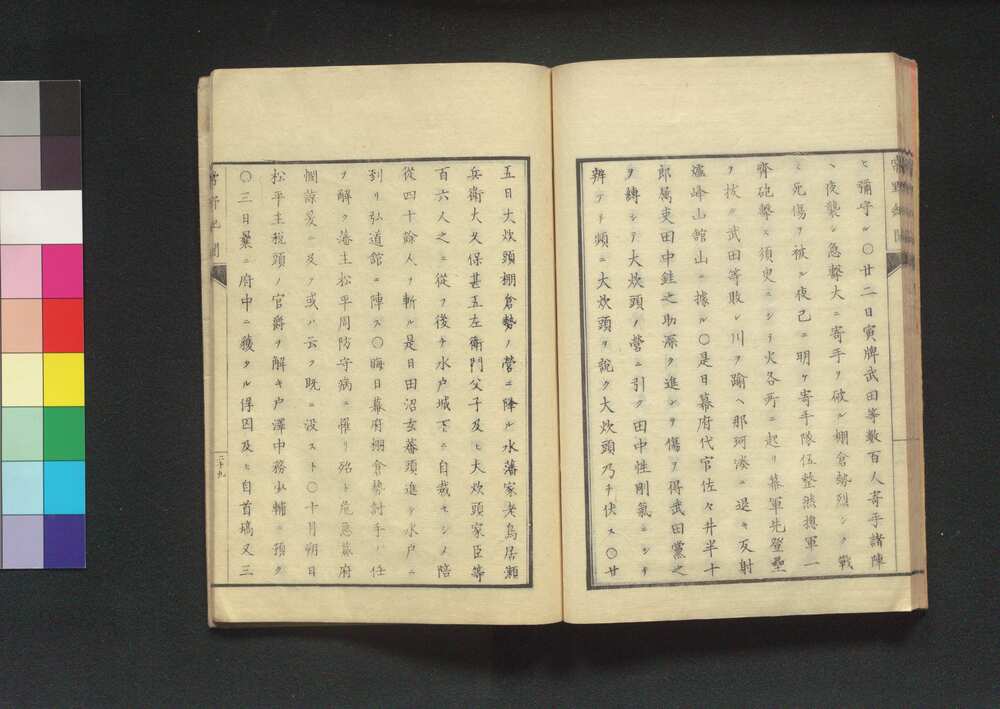 ヒ彌守ル〇廿二日寅牌武田等數百人寄手諸陣
ヽ夜襲シ急擊大ニ寄手ヲ破ル棚倉勢烈シク戰
ヒ死傷ヲ被ル夜已ニ明ケ寄手隊伍整然摠軍一
齊砲擊ス須臾ニシテ火各所ニ起リ幕軍先登壘
ヲ拔ク武田等敗レ川ヲ踰ヘ那珂湊ニ退キ反射
爐峰山舘山ニ據ル〇是日幕府代官佐々井半十
郎属吏田中銈之助深ク進ンテ傷ヲ得武田黨之
ヲ縛シテ大炊頭ノ營ニ引ク田中性剛氣ニシテ
辨アリ頻ニ大炊頭ヲ說ク大炊頭乃チ伏ス〇廿
五日大炊頭棚倉勢ノ營ニ降ル水藩家老鳥居瀬
兵衛大久保甚五左衛門父子及ヒ大炊頭家臣等
百六人之ニ從フ後チ水戸城下ニ自裁セシメ陪
從四十餘人ヲ斬ル是日田沼玄蕃頭進テ水戸ニ
到リ弘道館ニ陣ス〇晦日幕府棚倉勢討手ノ任
ヲ解ク藩主松平周防守病ニ罹リ殆ト危急幕府
悃諒爰ニ及フ或ハ云フ既ニ没スト〇十月朔日
松平主税頭ノ官爵ヲ解キ戸澤中務少輔ニ預ク
〇三日曩ニ府中ニ獲タル俘因及ヒ自首瑀又三
二十九